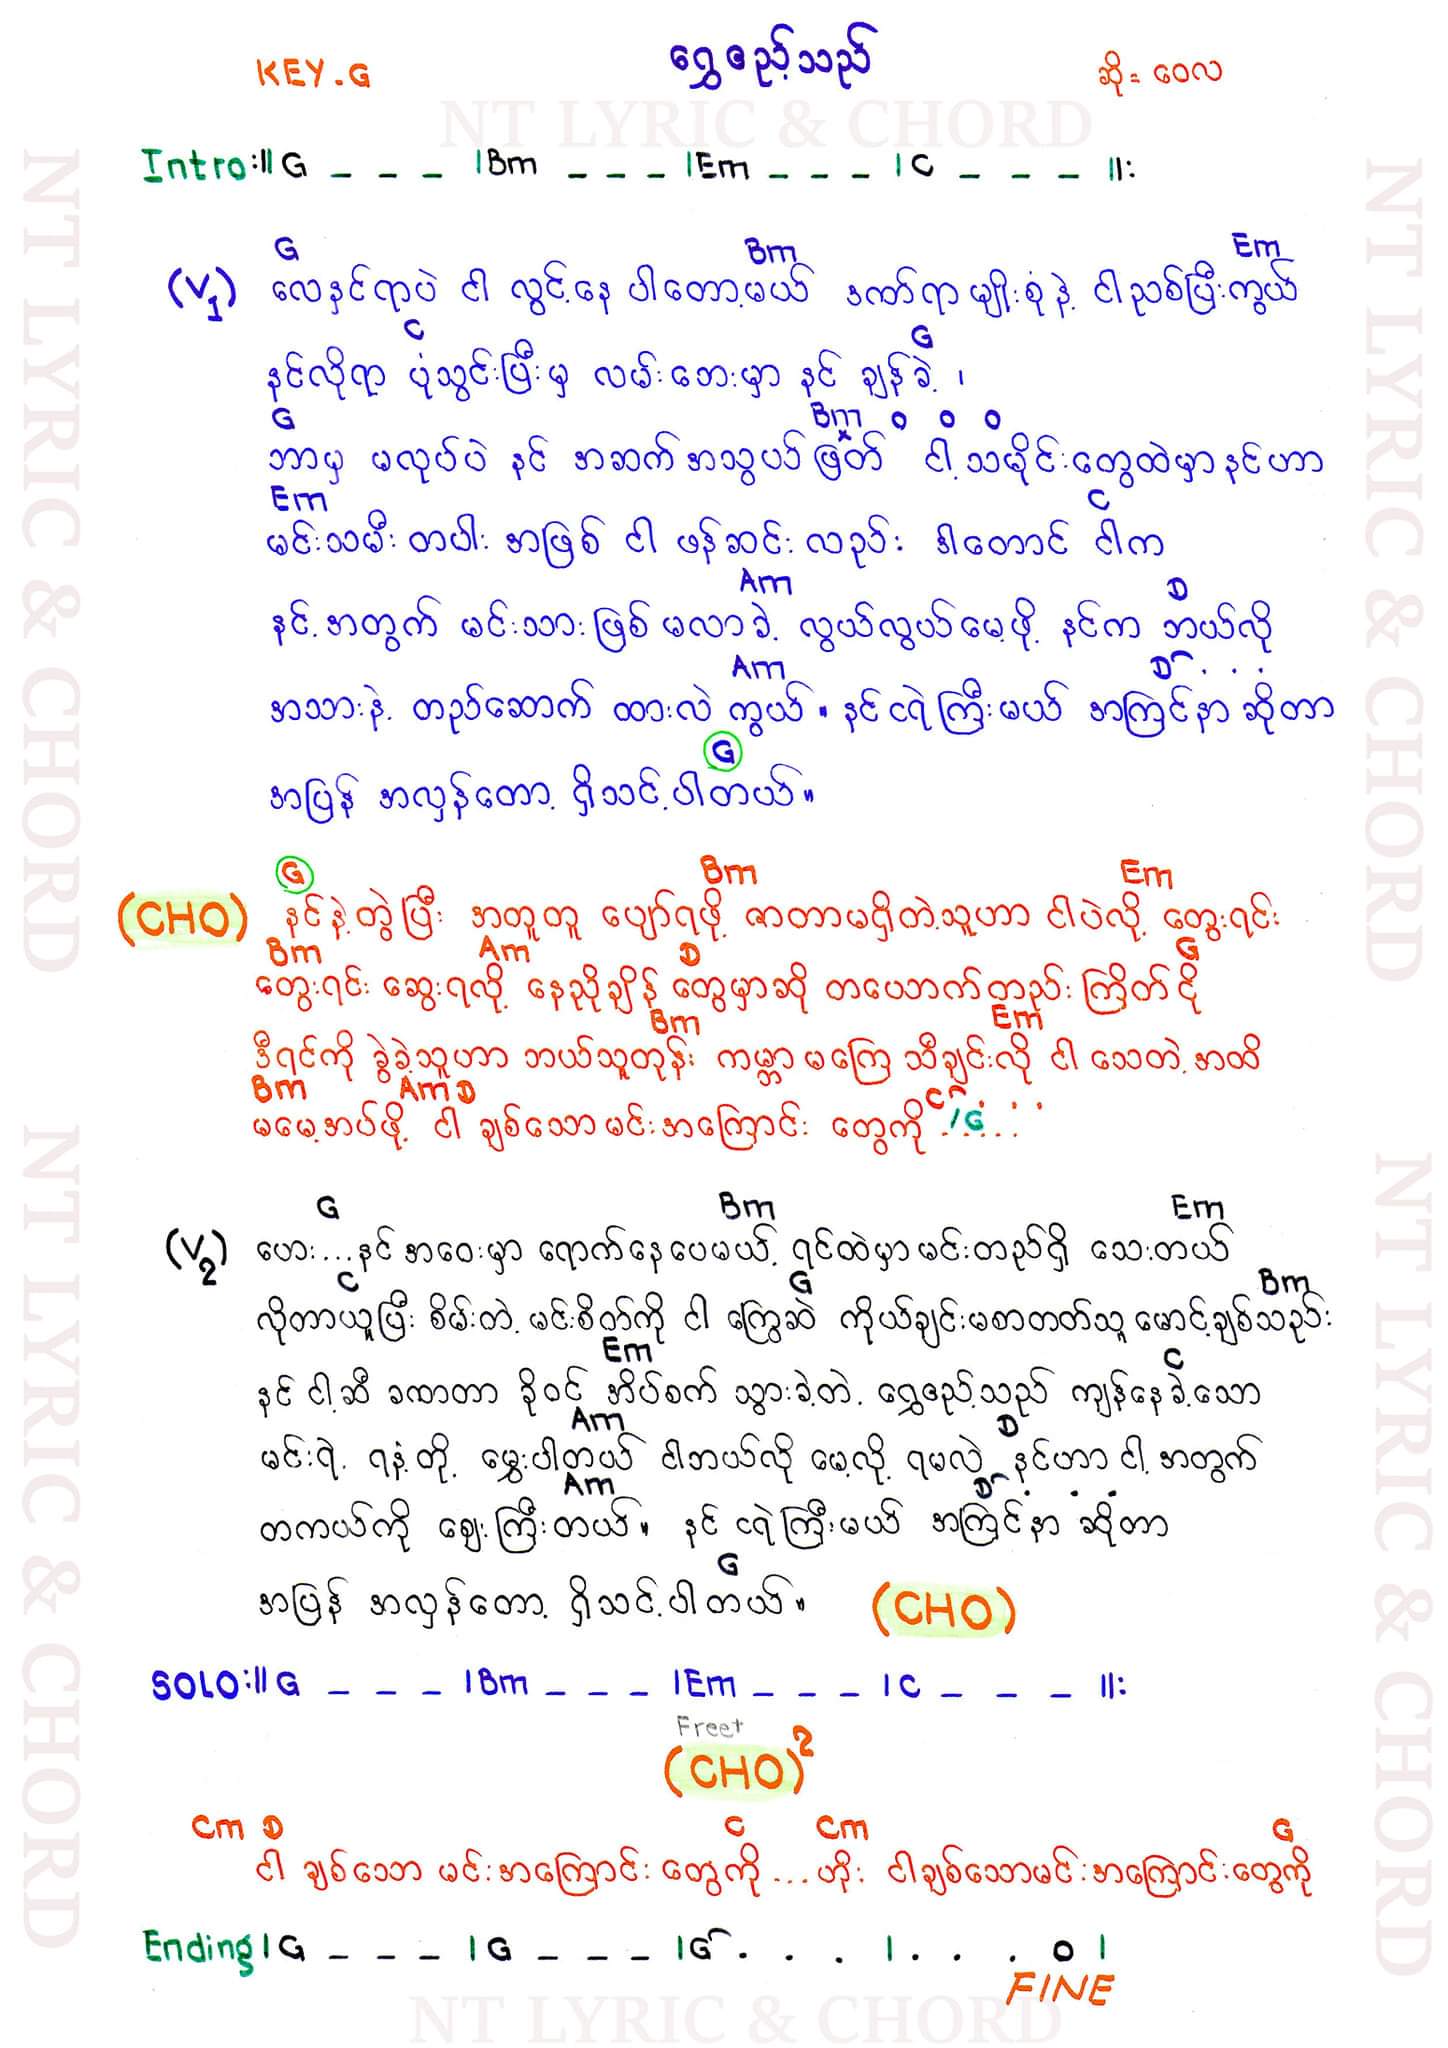 KEY-G ရွှေဧည့်သည် ဆို = ဝေလ
NT LYRIC & CHORD
Intro:|| G _ _ _ |Bm _ _ _ |Em _ _ _ |C _ _ _ ||:
G Bm Em
(V1) လေနှင်ရာပဲ ငါ လွင့်နေ ပါတော့မယ် ဒဏ်ရာမျိုးစုံနဲ့ ငါညစ်ပြီးကွယ်
C G
နင်လိုရာ ပုံသွင်းပြီးမှ လမ်းဘေးမှာ နင် ချန်ခဲ့ ၊
G Bm o o o
ဘာမှ မလုပ်ပဲ နင် အဆက်အသွယ်ဖြတ် ငါ့သမိုင်းတွေထဲမှာနင်ဟာ
Em C
မင်းသမီး တပါး အဖြစ် ငါ ဖန်ဆင်းလည်း ဒါတောင် ငါက
Am D
နင့်အတွက် မင်းသားဖြစ်မလာခဲ့ လွယ်လွယ်မေ့ဖို့ နင်က ဘယ်လို
Am D . . .
အသားနဲ့ တည်ဆောက် ထားလဲ ကွယ်။ နင်ငရဲကြီးမယ် အကြင်နာဆိုတာ
G
အပြန် အလှန်တော့ ရှိသင့်ပါတယ်။
G Bm Em
(CHO) နင်နဲ့တွဲပြီး အတူတူ ပျော်ရဖို့ ဇာတာမရှိတဲ့သူဟာ ငါပဲလို့ တွေးရင်း
Bm Am D G
တွေးရင်း ဆွေးရလို့ နေညိုချိန်တွေမှာဆို တယောက်တည်းကြိတ်ငို
Bm Em
ဒီရင်ကို ခွဲခဲ့သူဟာ ဘယ်သူတုန်း ကမ္ဘာမကြေ သီချင်းလို ငါ သေတဲ့အထိ
Bm Am D C /G . . .
မမေ့အပ်ဖို့ ငါ ချစ်သောမင်းအကြောင်း တွေကို . . . . .
G Bm Em
(V2) ဟေး...နင်အဝေးမှာ ရောက်နေပေမယ့် ရင်ထဲမှာမင်းတည်ရှိ သေးတယ်
C G Bm
လိုတာယူပြီး စိမ်းကဲ့ မင်းစိတ်ကို ငါ ကြွေဆဲ ကိုယ်ချင်းမစာတတ်သူ မောင့်ချစ်သည်း
Em C
နင် ငါ့ဆီ ခဏတာ ခိုဝင် အိပ်စက် သွားခဲ့တဲ့ ရွှေဧည့်သည် ကျန်နေခဲ့သော
Am D
မင်းရဲ့ ရနံ့တို့ မွှေးပါတယ် ငါဘယ်လို မေ့လို့ ရမလဲ နင်ဟာငါ့အတွက်
Am D . . .
တကယ်ကို ဈေးကြီးတယ်။ နင် ငရဲကြီးမယ် အကြင်နာ ဆိုတာ
G
အပြန် အလှန်တော့ ရှိသင့်ပါတယ်။ (CHO)
SOLO:|| G _ _ _ |Bm _ _ _ |Em _ _ _ |C _ _ _ ||:
Freet
(CHO)2
Cm D C Cm G
ငါ ချစ်သော မင်းအကြောင်း တွေကို ... ဟိုး ငါချစ်သောမင်းအကြောင်းတွေကို
Ending| G _ _ _ | G _ _ _ | G . . . | . . . o |
FINE
NT LYRIC & CHORD
NT LYRIC & CHORD
NT LYRIC & CHORD
NT LYRIC & CHORD
NT LYRIC & CHORD